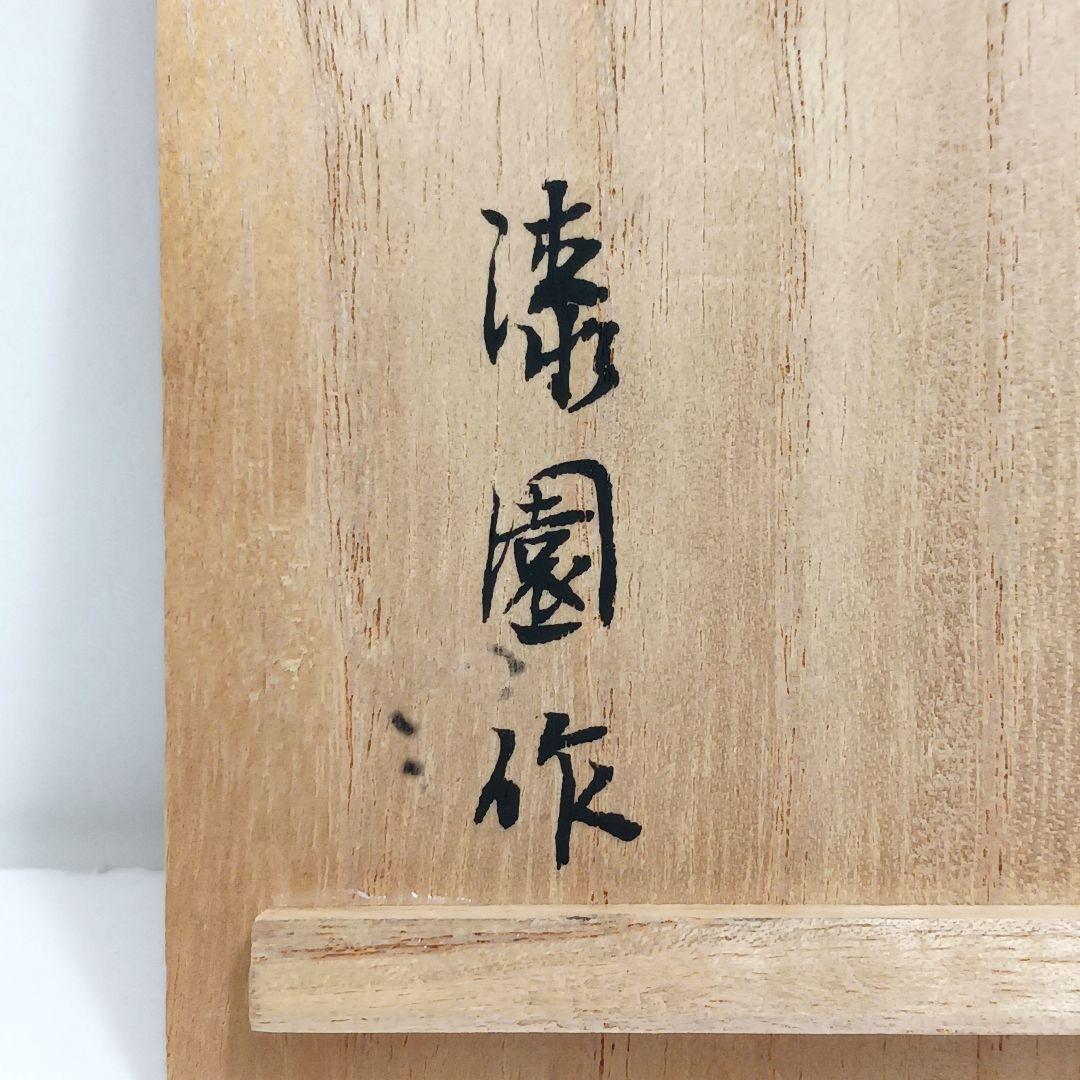 漆園作